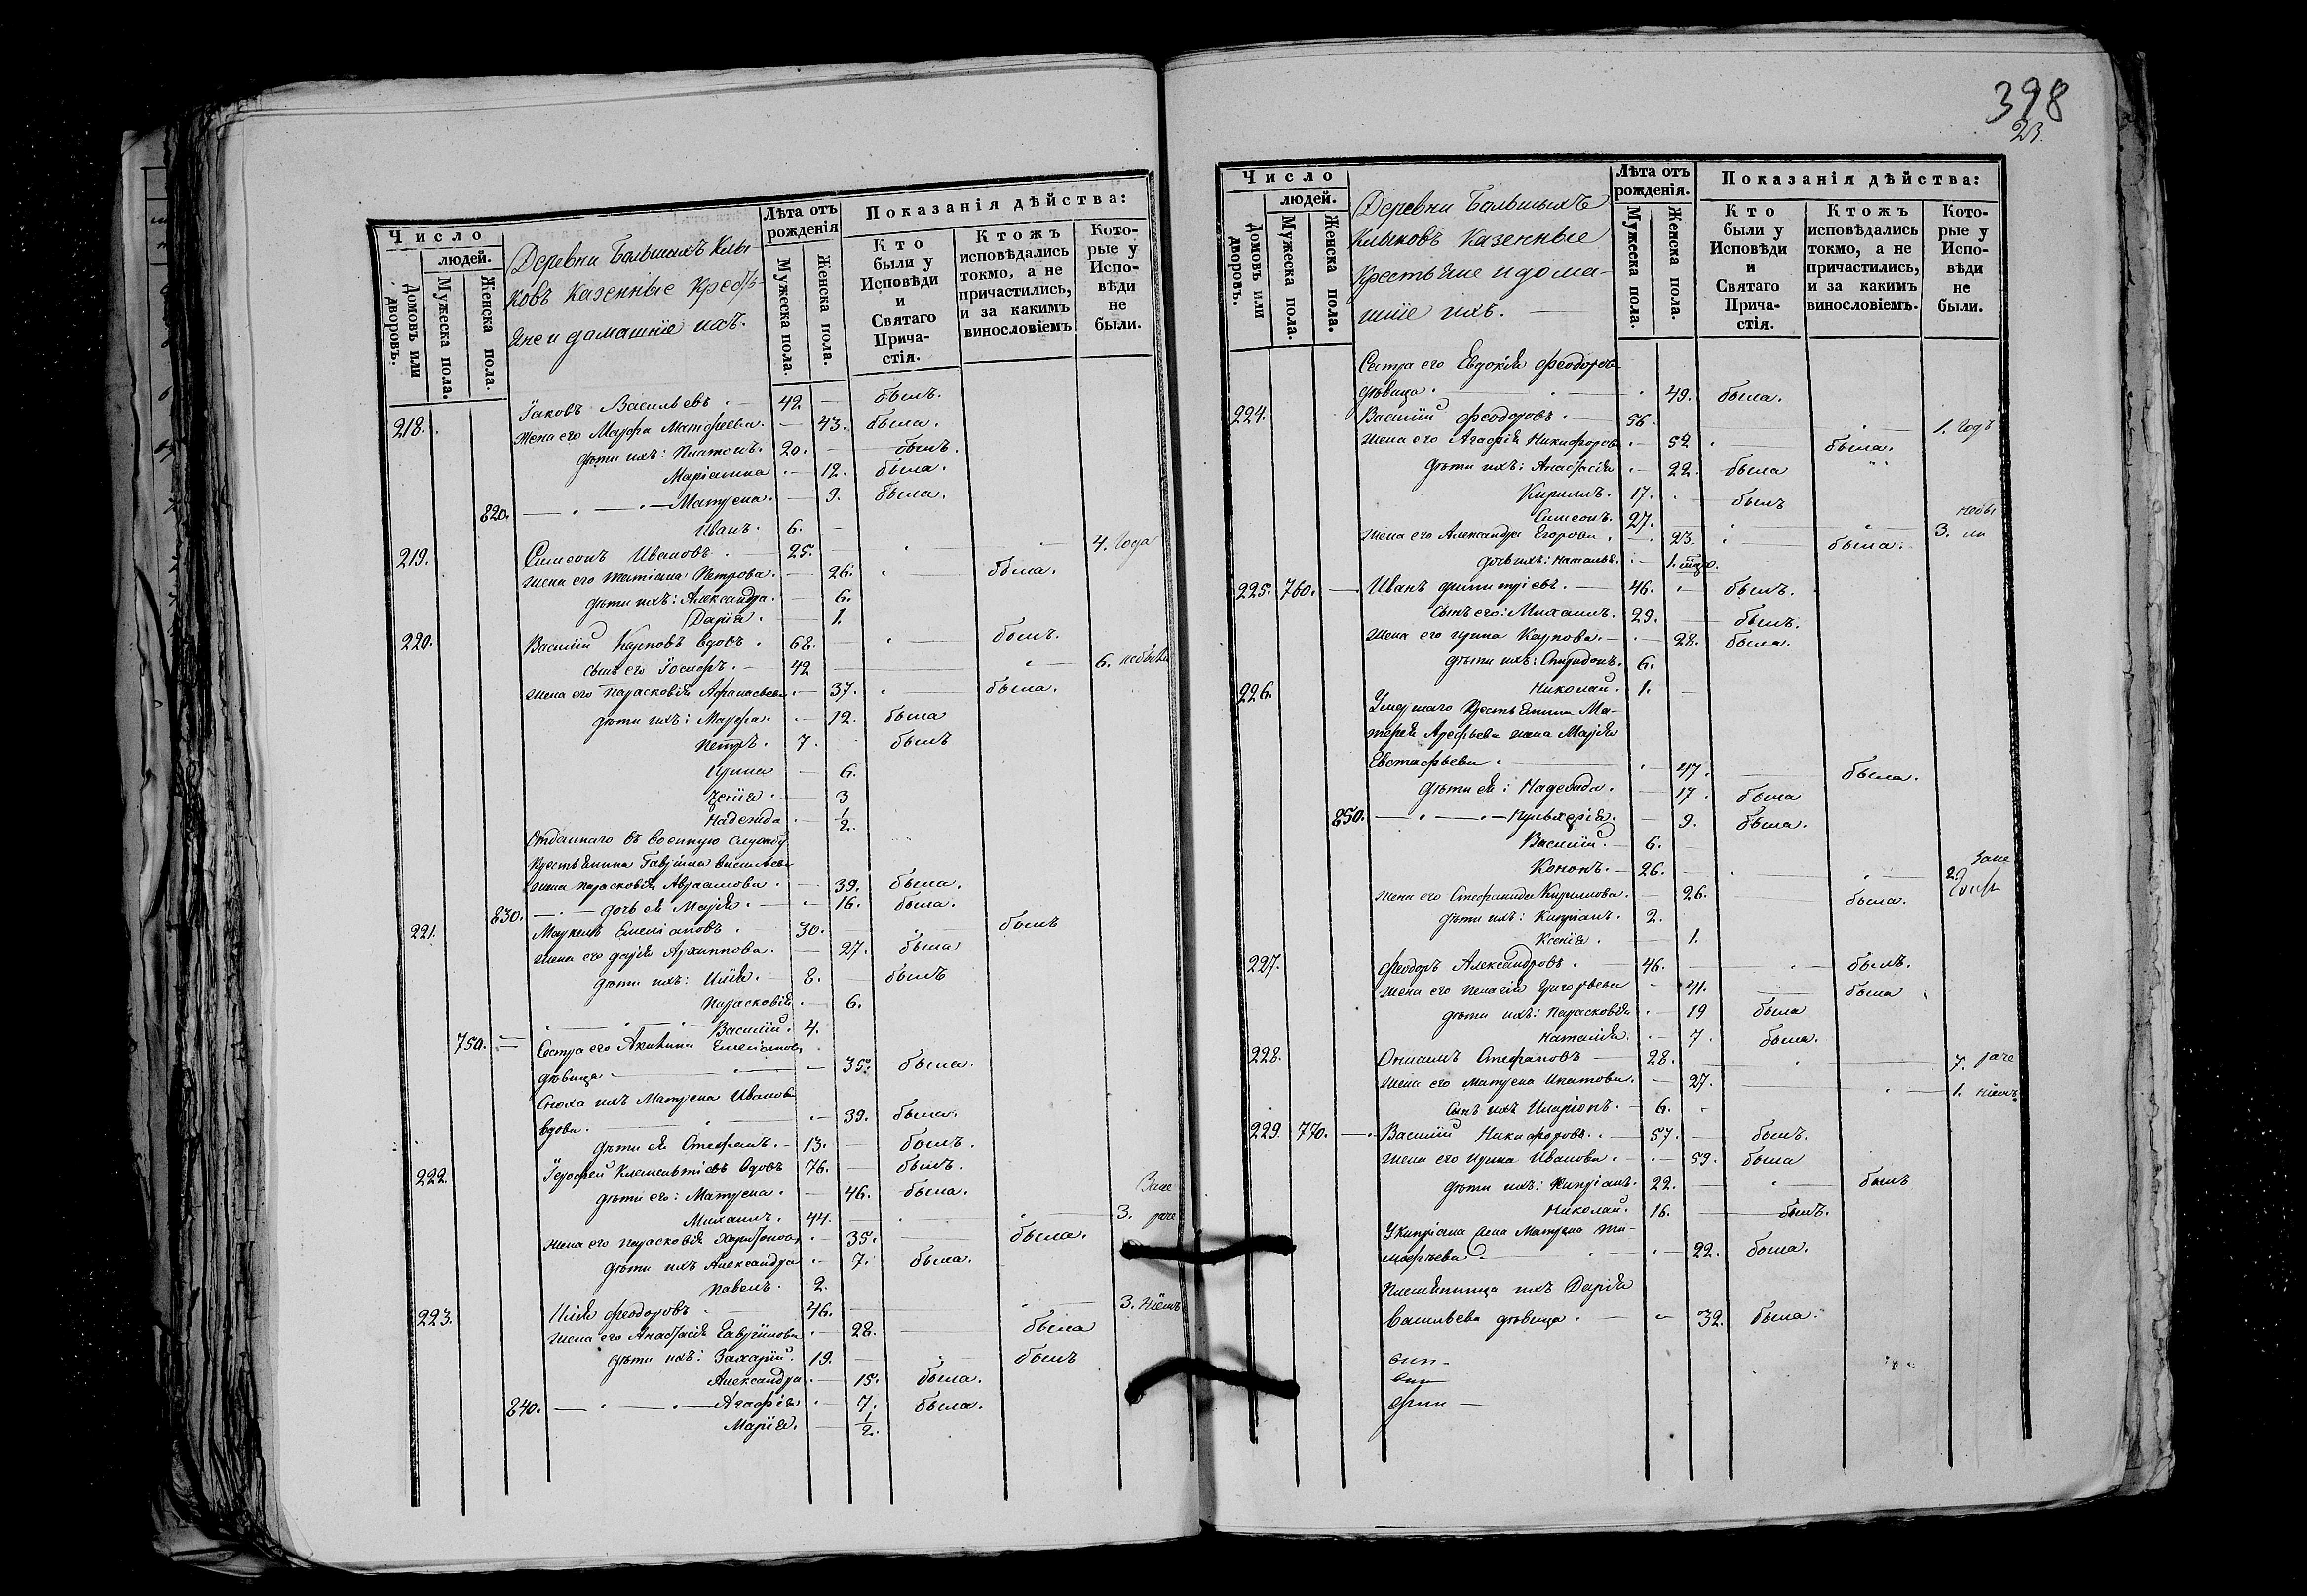 Число
людей.
Домовъ или дворовъ.
Мужеска пола.
Женска пола.
Деревни Большихъ Клы-
ковъ Казенные Крестья-
яне и домашніе ихъ.
Лѣта отъ рожденія
Мужеска пола.
Женска пола.
Показанія дѣйства:
Кто были у Исповѣди и Святаго Прича-стія.
Ктожъ исповѣдались токмо, а не причастились, и за какимъ винословіемъ
Кото-рые у Испо-вѣди не были.
218. Іаковъ Васильевъ. 42 — былъ.
жена его Марфа Матфеева. — 43. была.
дѣти ихъ: Платонъ. 20. — былъ.
Маріанна — 12. была.
820. Матрена. — 9. была.
Иванъ. 6. —
219. Симеонъ Ивановъ. 25. 4. года
жена его Татіана Петрова. — 26. была.
дѣти ихъ: Александра. — 6.
Дарія. — 1.
220. Василій Карповъ вдовъ. 68. былъ.
сынъ его Іосифъ. 42 6. небыли
жена его Парасковія Афанасьева. — 37. была.
дѣти ихъ: Марфа. — 12. была
Петръ. 7. былъ
Ирина — 6.
Ксенія. — 3
Надежда. — 1/2.
Отданнаго въ военную службу
Крестьянина Гавріила Васильева
жена Парасковія Авраамова. — 39. была.
830. дочь ея Марія. — 16. была.
221. Маркелъ Емеліановъ. 30. былъ
жена его Дарія Архиппова. — 27. была
дѣти ихъ: Илія. 8. былъ
Парасковія. — 6.
750. Василій. 4.
Сестра его Акилина Емеліанова
дѣвица — 35. была.
Сноха ихъ Матрена Иванова
вдова. — 39. была.
дѣти ея Стефанъ. 13. — былъ.
222. Іерофей Клементіевъ вдовъ 76. — былъ.
дѣти его: Матрена. — 46. была.
Михаилъ. 44. 3. раче
жена его Парасковія Харитонова — 35. была.
дѣти ихъ Александра — 7. была.
Павелъ. 2.
223. Илія Феодоровъ. 46. 3. ніемъ
жена его Анастасія Гавріилова — 28. была
дѣти ихъ: Захарій. 19. — былъ
Александра — 15. была.
840. Агафія — 7. была.
Марія. — 1/2.
398
23
Число
людей.
Домовъ или дворовъ.
Мужеска пола.
Женска пола.
Деревни Большихъ
Клыковъ Казенные
Крестьяне и дома-
шніе ихъ.
Лѣта отъ рожденія.
Мужеска пола.
Женска пола.
Показанія дѣйства:
Кто были у Исповѣди и Святаго Прича-стія.
Ктожъ исповѣдались токмо, а не причастились, и за какимъ винословіемъ.
Кото-рые у Испо-вѣди не были.
Сестра его Евдокія Феодорова
дѣвица. — 49. была.
224. Василій Феодоровъ. 56. 1. годъ
жена его Агафія Никифорова — 52. была.
дѣти ихъ: Анастасія — 22. была
Кириллъ. 17. былъ
Симеонъ. 27. 3. небыли
жена его Александра Егорова. — 23. была.
дочь ихъ: Наталья. — 1.
225. 760. Иванъ Димитріевъ. 46. былъ.
сынъ его: Михаилъ. 29. былъ.
жена его Ирина Карпова. — 28. была.
дѣти ихъ: Спиридонъ. 6.
Николай. 1. —
226. Умершаго Крестьянина Ма-
тфея Арефьева жена Марія
Евстафьева. — 47. была.
дѣти ея: Надежда. — 17. была
850. Пульхерія. — 9. была.
Василій. 6.
Кононъ. 26. 2.
жена его Стефанида Кириллова. — 26. была.
дѣти ихъ: Кипріанъ. 2.
Ксенія. — 1.
227. Феодоръ Александровъ. 46. былъ.
жена его Пелагія Григорьева — 41. была
дѣти ихъ: Парасковія — 19 была
Наталія. — 7. была.
228. Стефановъ 28. 7. раче
жена его Матрена Ипатова. — 27. 1. ніемъ
сынъ ихъ Иларіонъ. 6.
229. 770. Василій Никифоровъ. 57. былъ.
жена его Ирина Иванова. — 59. была
дѣти ихъ: Кипріанъ. 22. былъ
Николай. 16. былъ.
У Кипріана жена Матрена Ти-
мофѣева — 22. была.
Племянница ихъ Дарія
Васильева дѣвица. — 32. была.